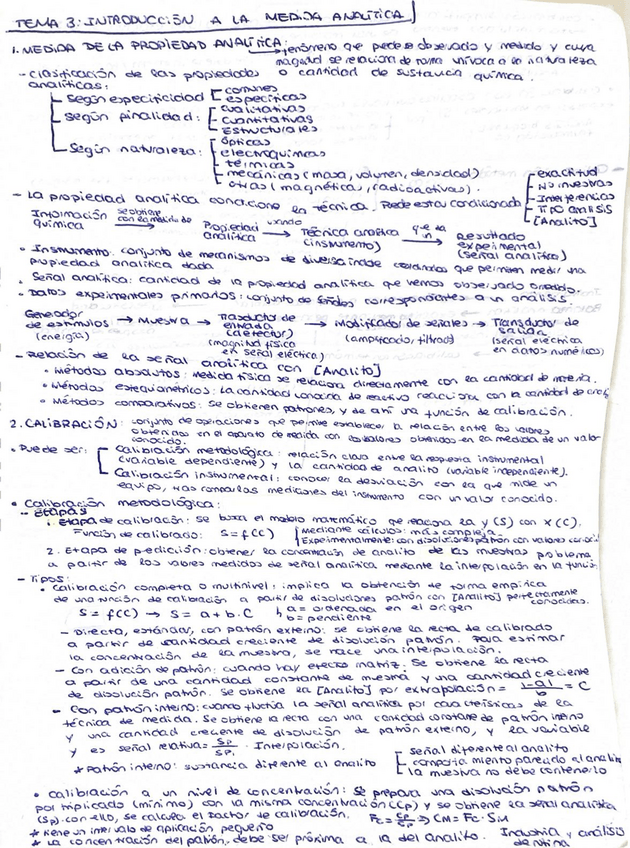 TEMA 3: INTRODUCCIÓN A LA MEDIDA ANALÍTICA
1. MEDIDA DE LA PROPIEDAD ANALÍTICA: fenómeno que puede ser observado y medido y cuya
magnitud se relaciona de forma unívoca a la naturaleza
o cantidad de sustancia química.
- Clasificación de las propiedades
analíticas:
Según especificidad comunes
específicas
Según finalidad: cualitativas
cuantitativas
estructurales
Según naturaleza: ópticas
electroquímicas
térmicas
mecánicas (masa, volumen, densidad)
otras (magnética, radioactivas).
- La propiedad analítica condiciona la técnica. Puede estar condicionada
exactitud
Nº muestras
Interferencias
Tipo análisis
[Analito]
Información química se obtiene con la medida de → Propiedad analítica usando → Técnica analítica (instrumento) → Resultado experimental (señal analítica)
• Instrumento: conjunto de mecanismos de diversa índole que permiten medir una
propiedad analítica dada
• Señal analítica: cantidad de la propiedad analítica que hemos observado
• Datos experimentales primarios: conjunto de correspondientes a un análisis.
Generador de estímulos (energía) → Muestra → Traductor de entrada (detector) (magnitud física en señal eléctrica) → Modificador de señales (amplificador, filtrad) → Transductor de salida (señal eléctrica en datos numéricos)
- Relación de la señal analítica con [Analito]
• Métodos absolutos: medida física se relaciona directamente con la cantidad de materia.
• Métodos estequiométricos: la cantidad conocida de reactivo reacciona con la cantidad de
• Métodos comparativos: se obtienen patrones, y de ahí una función de calibración.
2. CALIBRACIÓN: conjunto de operaciones que permite establecer la relación entre los valores
obtenidos en el aparato de medida con los valores obtenidos en la medida de un valor
conocido.
• Puede ser: Calibración metodológica: relación clara entre la respuesta instrumental
(variable dependiente) y la cantidad de analito (variable independiente).
Calibración instrumental: conocer la desviación con la que mide un
equipo, tras compararlas mediciones del instrumento con un valor conocido.
• Calibración metodológica:
- Etapas
1. Etapa de calibración: se busca el modelo matemático que relaciona la y (S) con x (C).
Función de calibrado: S = f(C) Mediante cálculos: más compleja.
Experimentalmente: con disoluciones patrón con valores
2. Etapa de predicción: obtener la concentración de analito de las muestras problema
a partir de los valores medidos de señal analítica mediante la interpolación en la función
- Tipos:
• Calibración completa o multinivel: implica la obtención de forma empírica
de una función de calibración a partir de disoluciones patrón con [Analito] perfectamente
conocidas.
S = f(C) → S = a + b·C a = ordenada en el origen
b = pendiente
- Directa, estándar, con patrón externo: se obtiene la recta de calibrado
a partir de cantidad creciente de disolución patrón. Para estimar
la concentración de la muestra, se hace una interpolación.
- Con adición de patrón: cuando hay efectos matriz. Se obtiene la recta
a partir de una cantidad constante de muestra y una cantidad creciente
de disolución patrón. Se obtiene la [Analito] por extrapolación = |-a|/b = C
- Con patrón interno: cuando fluctúa la señal analítica por características de la
técnica de medida. Se obtiene la recta con una cantidad constante de patrón interno
y una cantidad creciente de disolución de patrón externo, y la variable
y es señal relativa = Sp/SPI. Interpolación.
* Patrón interno: sustancia diferente al analito
señal diferente al analito
comportamiento parecido al analito
la muestra no debe contenerlo
• Calibración a un nivel de concentración: se prepara una disolución patrón
por triplicado (mínimo) con la misma concentración (Cp) y se obtiene la señal analítica
(Sp) con ello, se calcula el factor de calibración. Fc = Cp/Sp → CM = Fc · SM
* tiene un intervalo de aplicación pequeño
* La concentración del patrón, debe ser próxima a la del analito. Industria y análisis
de rutina